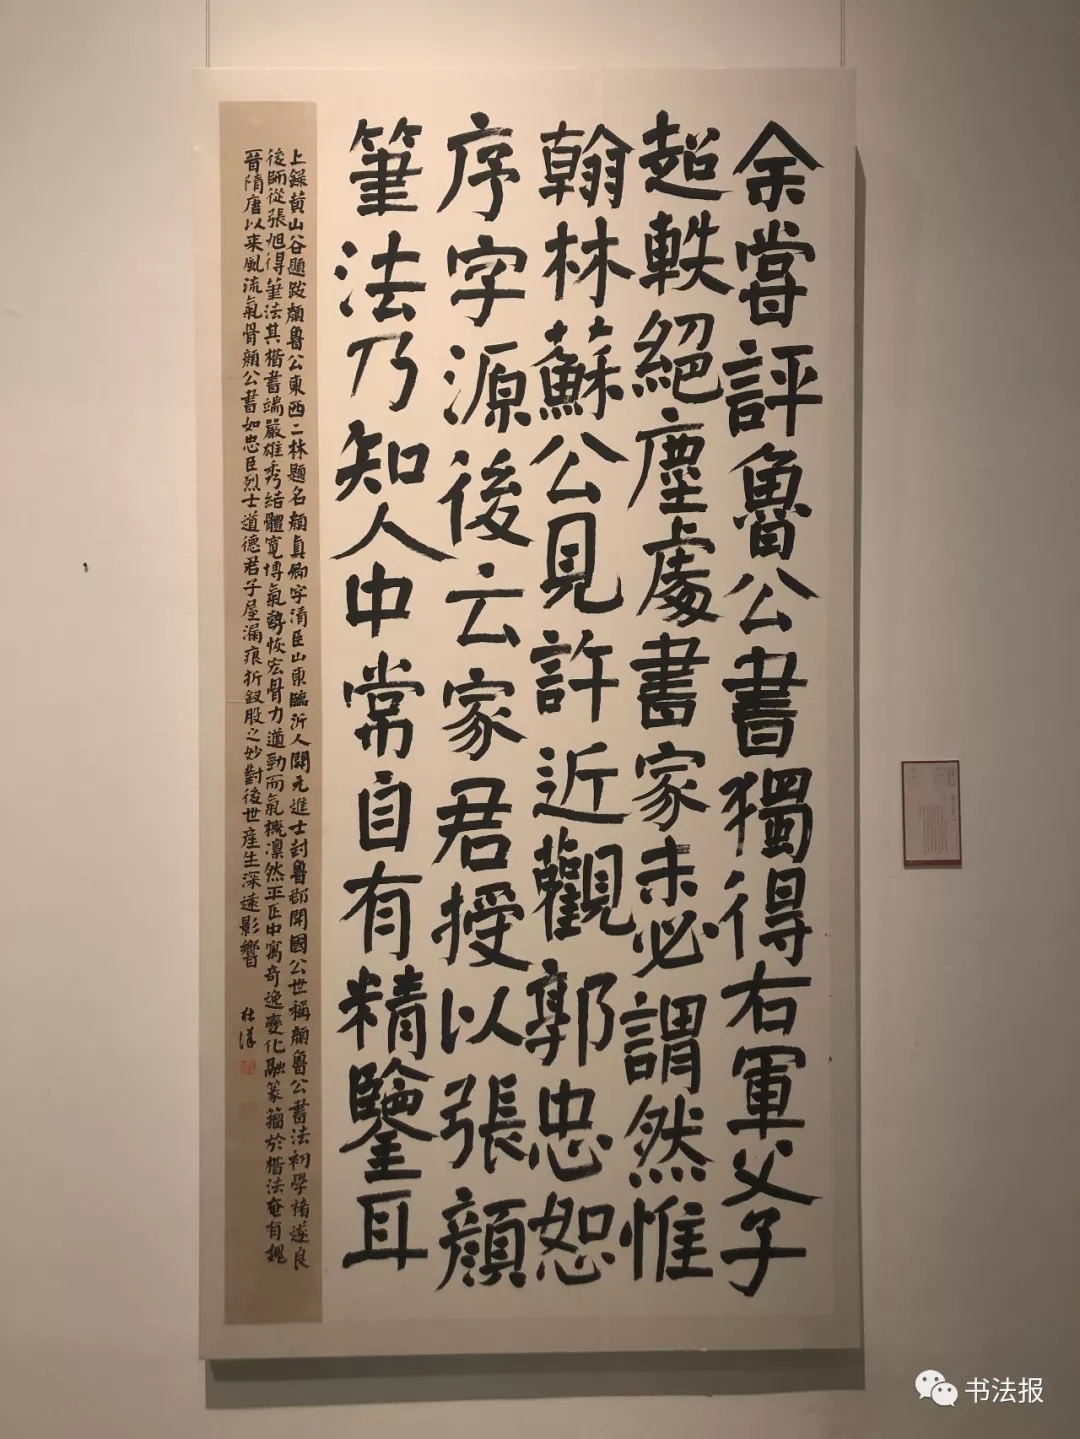 余嘗評魯公書獨得右軍父子
超軼絕塵處書家未必謂然惟
翰林蘇公見許近觀郭忠恕
序字源後云家君授以張顏
筆法乃知人中常自有精鑒耳
上錄黄山谷題跋顏魯公東西二林題名顏真卿字清臣山東臨沂人開元進士封魯郡開國公世稱顏魯公書法初學褚遂良
後師從張旭得筆法其楷書端嚴雄秀結體寬博氣勢恢宏骨力遒勁而氣概凛然平正中寓奇逸變化融篆籀於楷法奄有魏
晉隋唐以来風流氣骨顏公書如忠臣烈士道德君子屋漏痕折釵股之妙對後世産生深遠影響
书法报